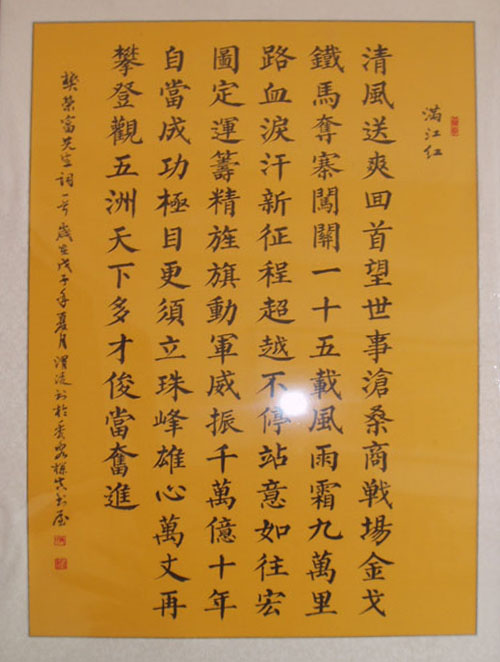 满江红
清風送爽囬首望世事滄桑商戦場金戈
鐵馬奪寨闖關一十五載風雨霜九萬里
路血淚汗新征程超越不停站意如往宏
圖定運籌精旌旗動軍威振千萬億十年
自當成功極目更須立珠峰雄心萬丈再
攀登觀五洲天下多才俊當奮進
樊荣富先生词一首歲在戊子年夏月